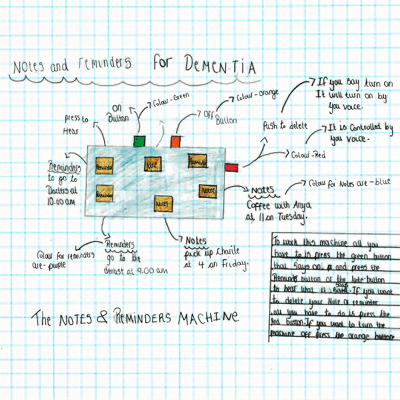 Notes and reminders for DEMENTIA
on Button
Colour-Green
Colour-orange
Off Button
press to Hear
Push to delete
If you say turn on
It will turn on by
you voice.
It is controlled by
you voice.
Colour-Red
Reminders
to go to
Doctors at
10:00 am
Notes
Notes
Notes
Notes
Coffee with Anya
at 11 on Tuesday.
Colour for Notes are-blue
Colour for reminders
are-purple
Reminders
go to the
dentist at 9.00am
Notes
pick up Charlie
at 4 on Friday.
To work this machine all you
have to is press the green button
that says on and press the
Reminds button or the Note button
to hear what it says. If you want
to delete your Note or reminder
all you have to do is press the
red button. If you want to turn the
machine off press the orange button
The NOTES & REMINDERS MACHINE